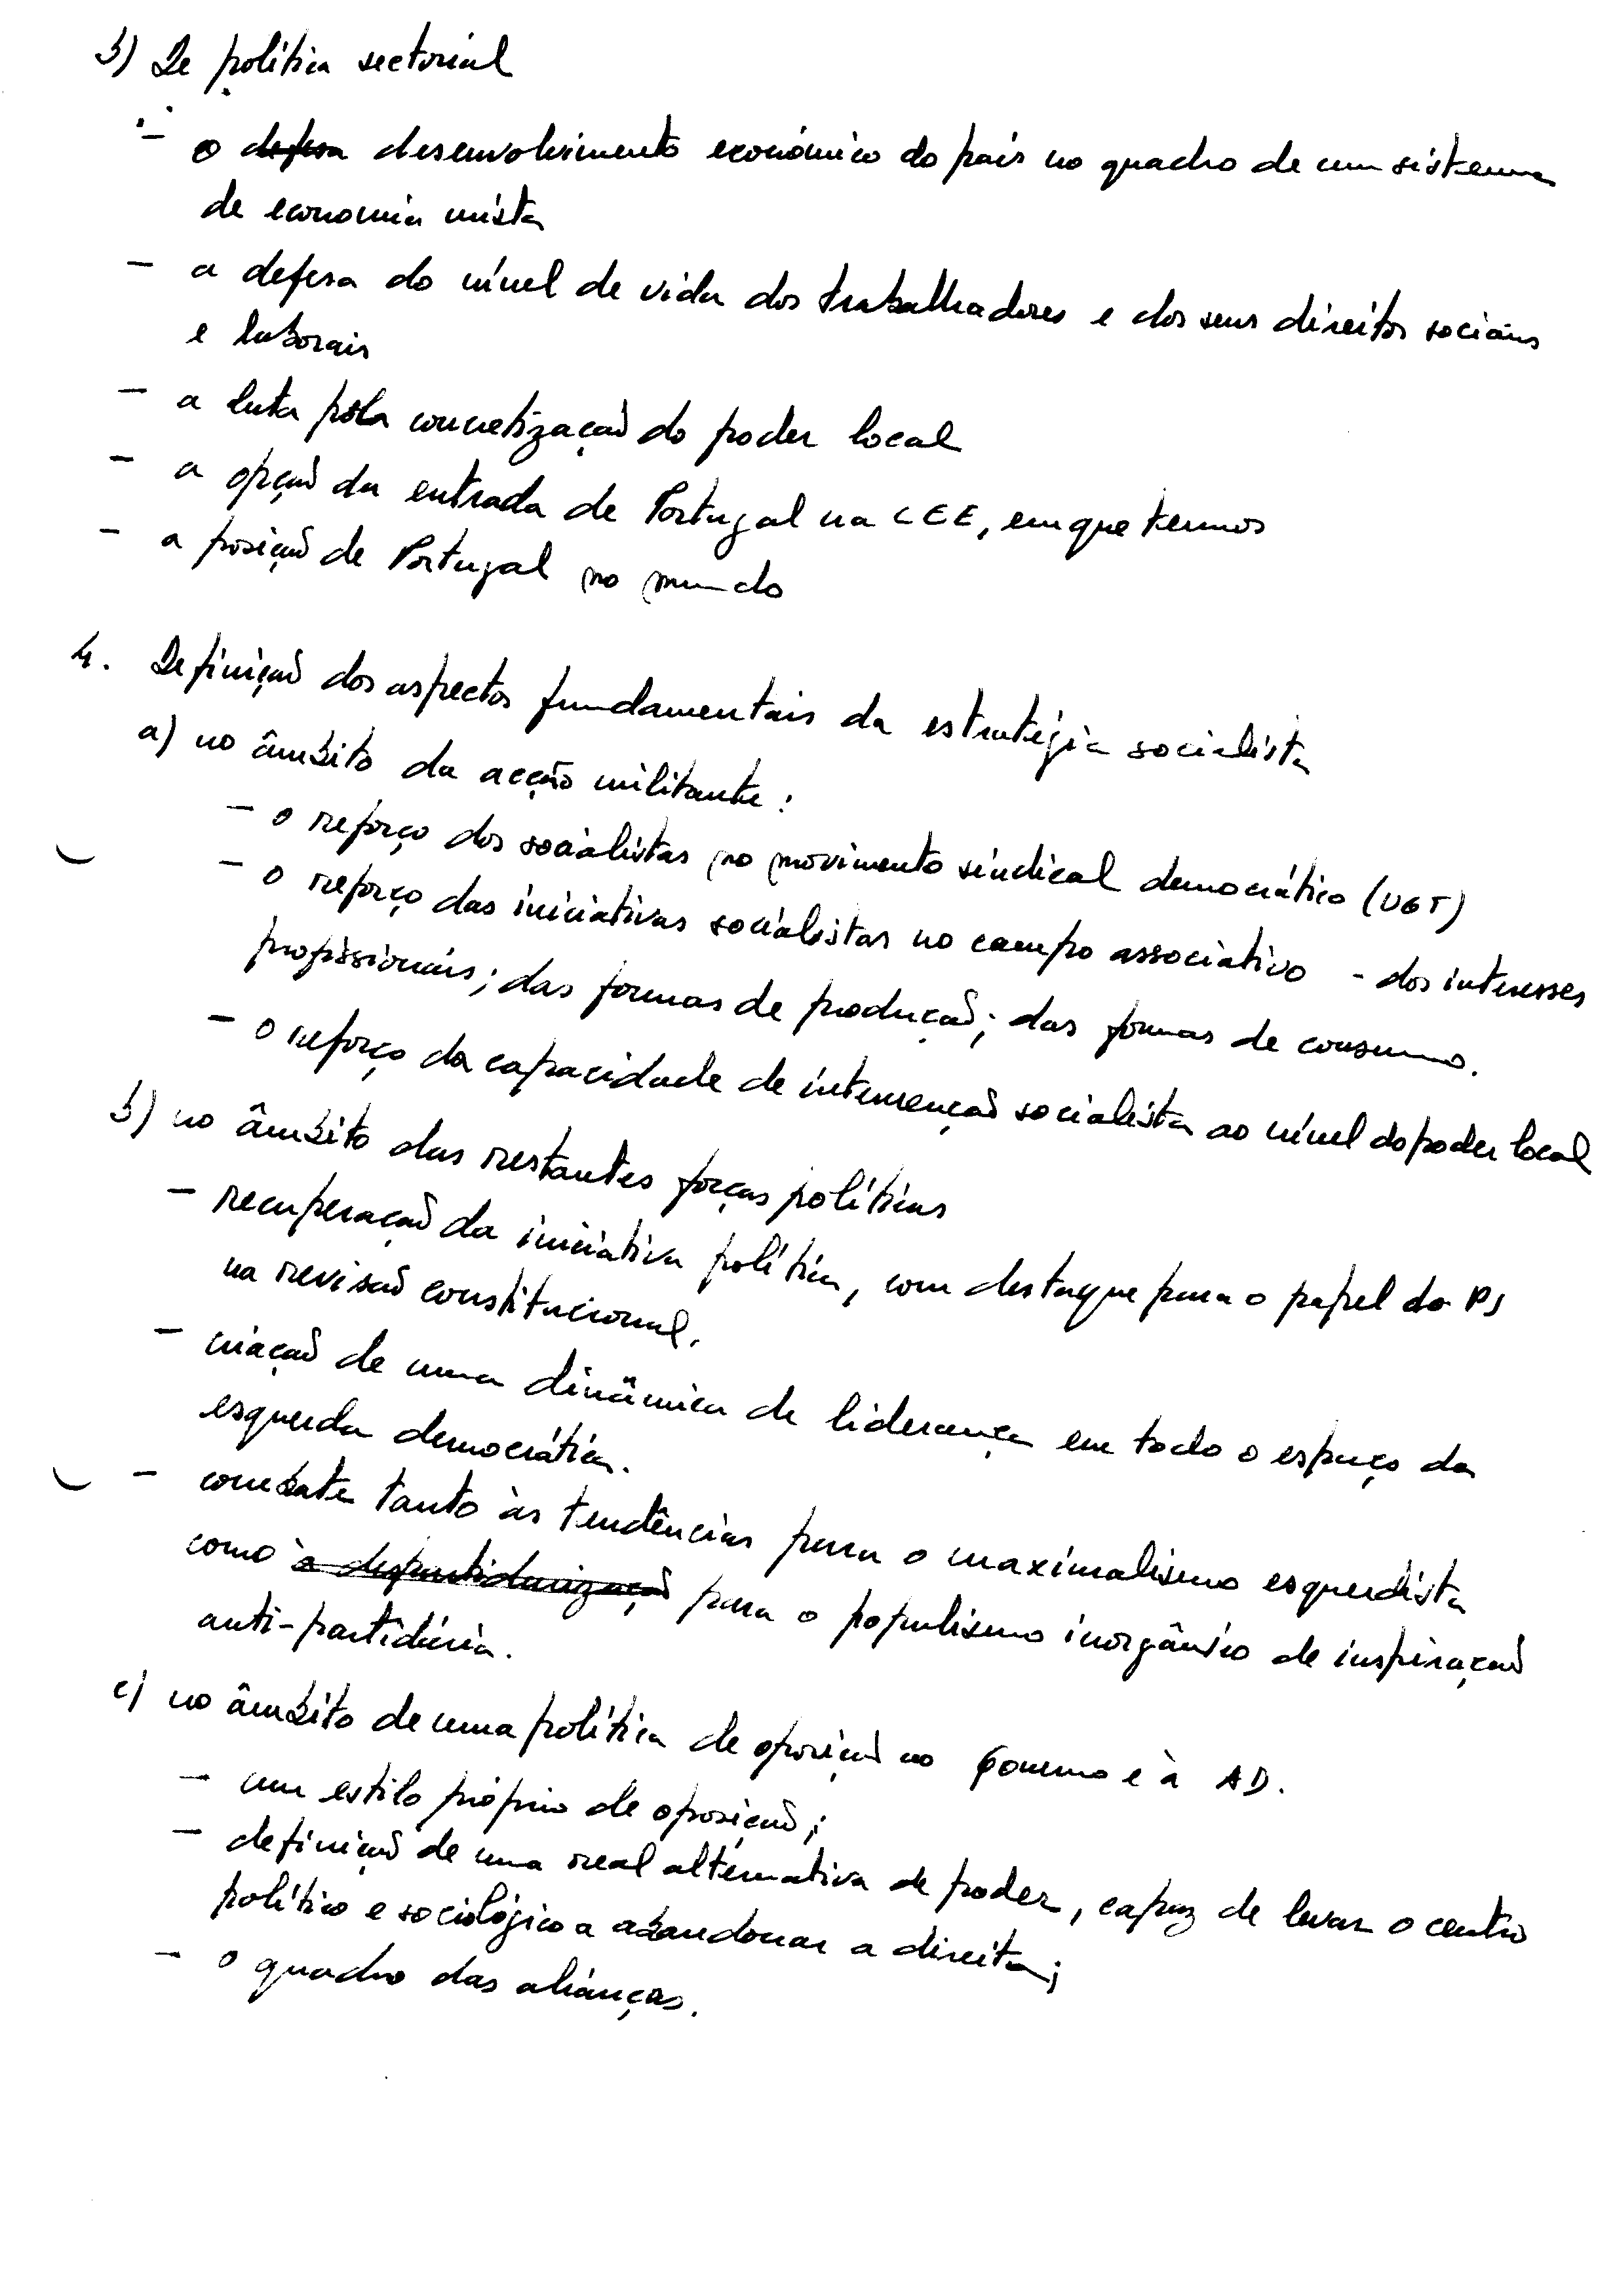 b) De política sectorial
- o ~~defesa~~ desenvolvimento económico do país no quadro de um sistema
de economia mista
- a defesa do nível de vida dos trabalhadores e dos seus direitos sociais
e laborais
- a luta pela concretização do poder local
- a opção da entrada de Portugal na CEE, em que termos
- a posição de Portugal no mundo
4. Definição dos aspectos fundamentais da estratégia socialista
a) no âmbito da acção militante:
- o reforço dos socialistas no movimento sindical democrático (UGT)
- o reforço das iniciativas socialistas no campo associativo - dos interesses
profissionais; das formas de produção; das formas de consumo.
- o reforço da capacidade de intervenção socialista ao nível do poder local
b) no âmbito das restantes forças políticas
- recuperação da iniciativa política, com destaque para o papel do PS
na revisão constitucional.
- criação de uma dinâmica de liderança em todo o espaço da
esquerda democrática.
- combate tanto às tendências para o maximalismo esquerdista
como ~~à despartidarização~~ para o populismo inorgânico de inspiração
anti-partidária.
c) no âmbito de uma política de oposição ao Governo e à AD.
- um estilo próprio de oposição;
- definição de uma real alternativa de poder, capaz de levar o centro
político e sociológico a abandonar a direita;
- o quadro das alianças.